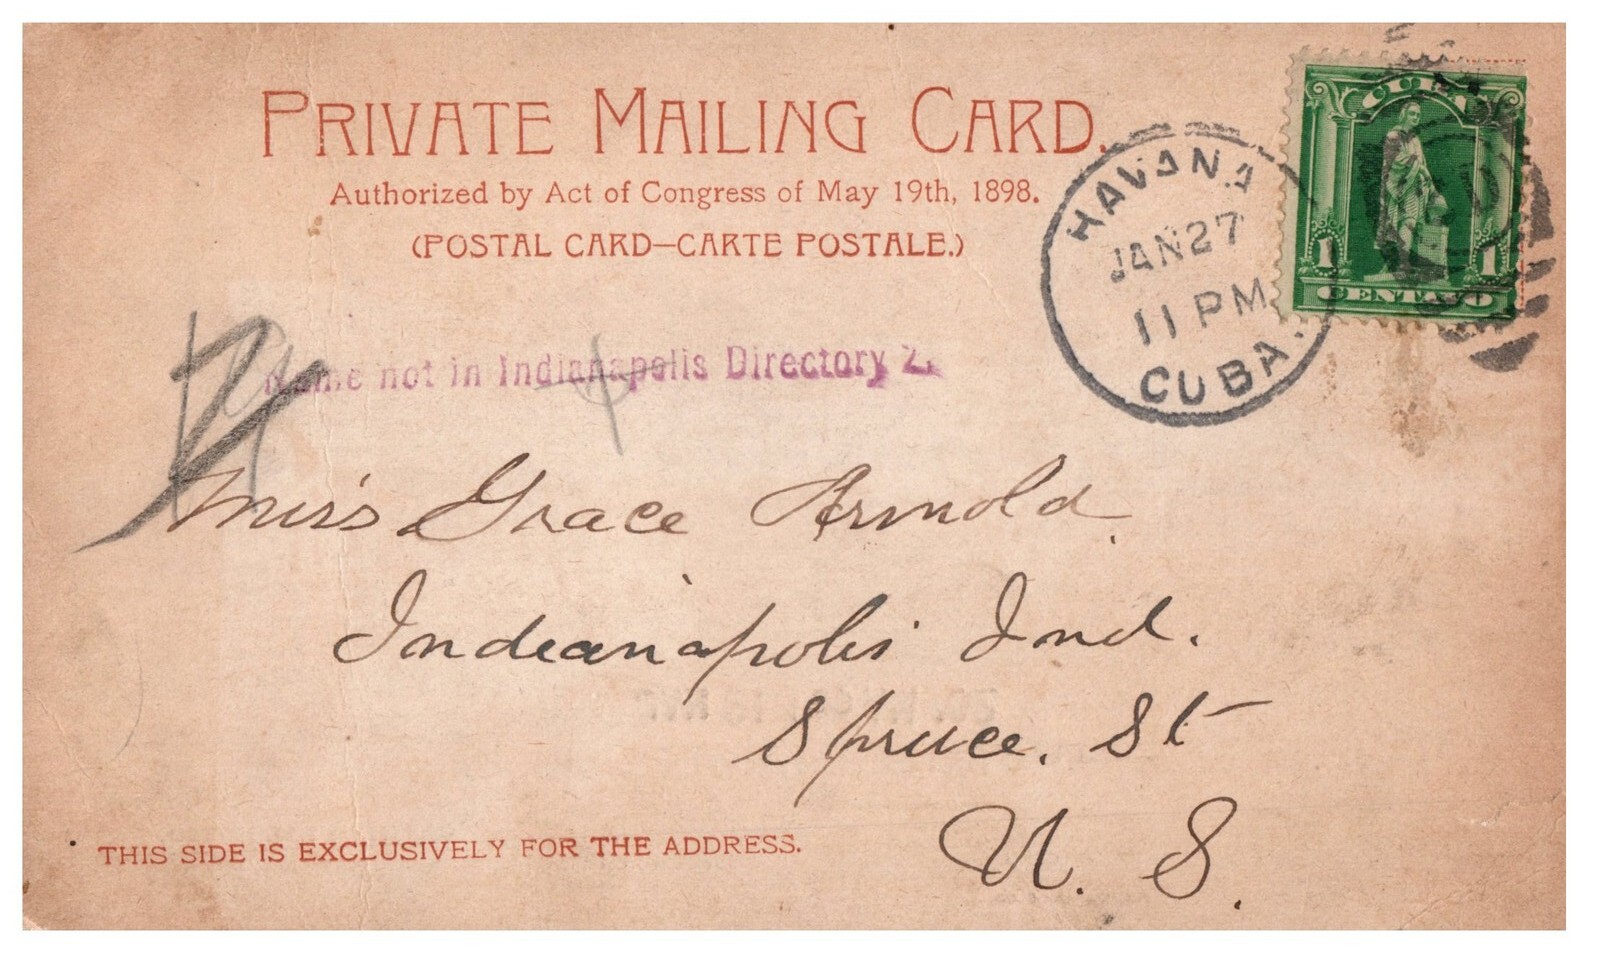 PRIVATE MAILING CARD.
Authorized by Act of Congress of May 19th, 1898.
(POSTAL CARD—CARTE POSTALE.)
CUBA
1 1
CENTAVO
HAVANA
JAN 27
11 PM
CUBA.
Name not in Indianapolis Directory 2.
Miss Grace Arnold.
Indianapolis Ind.
Spruce. St
U. S.
THIS SIDE IS EXCLUSIVELY FOR THE ADDRESS.